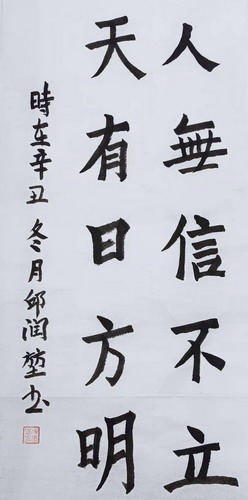 人無信不立
天有日方明
時在辛丑冬月邱潤堃书